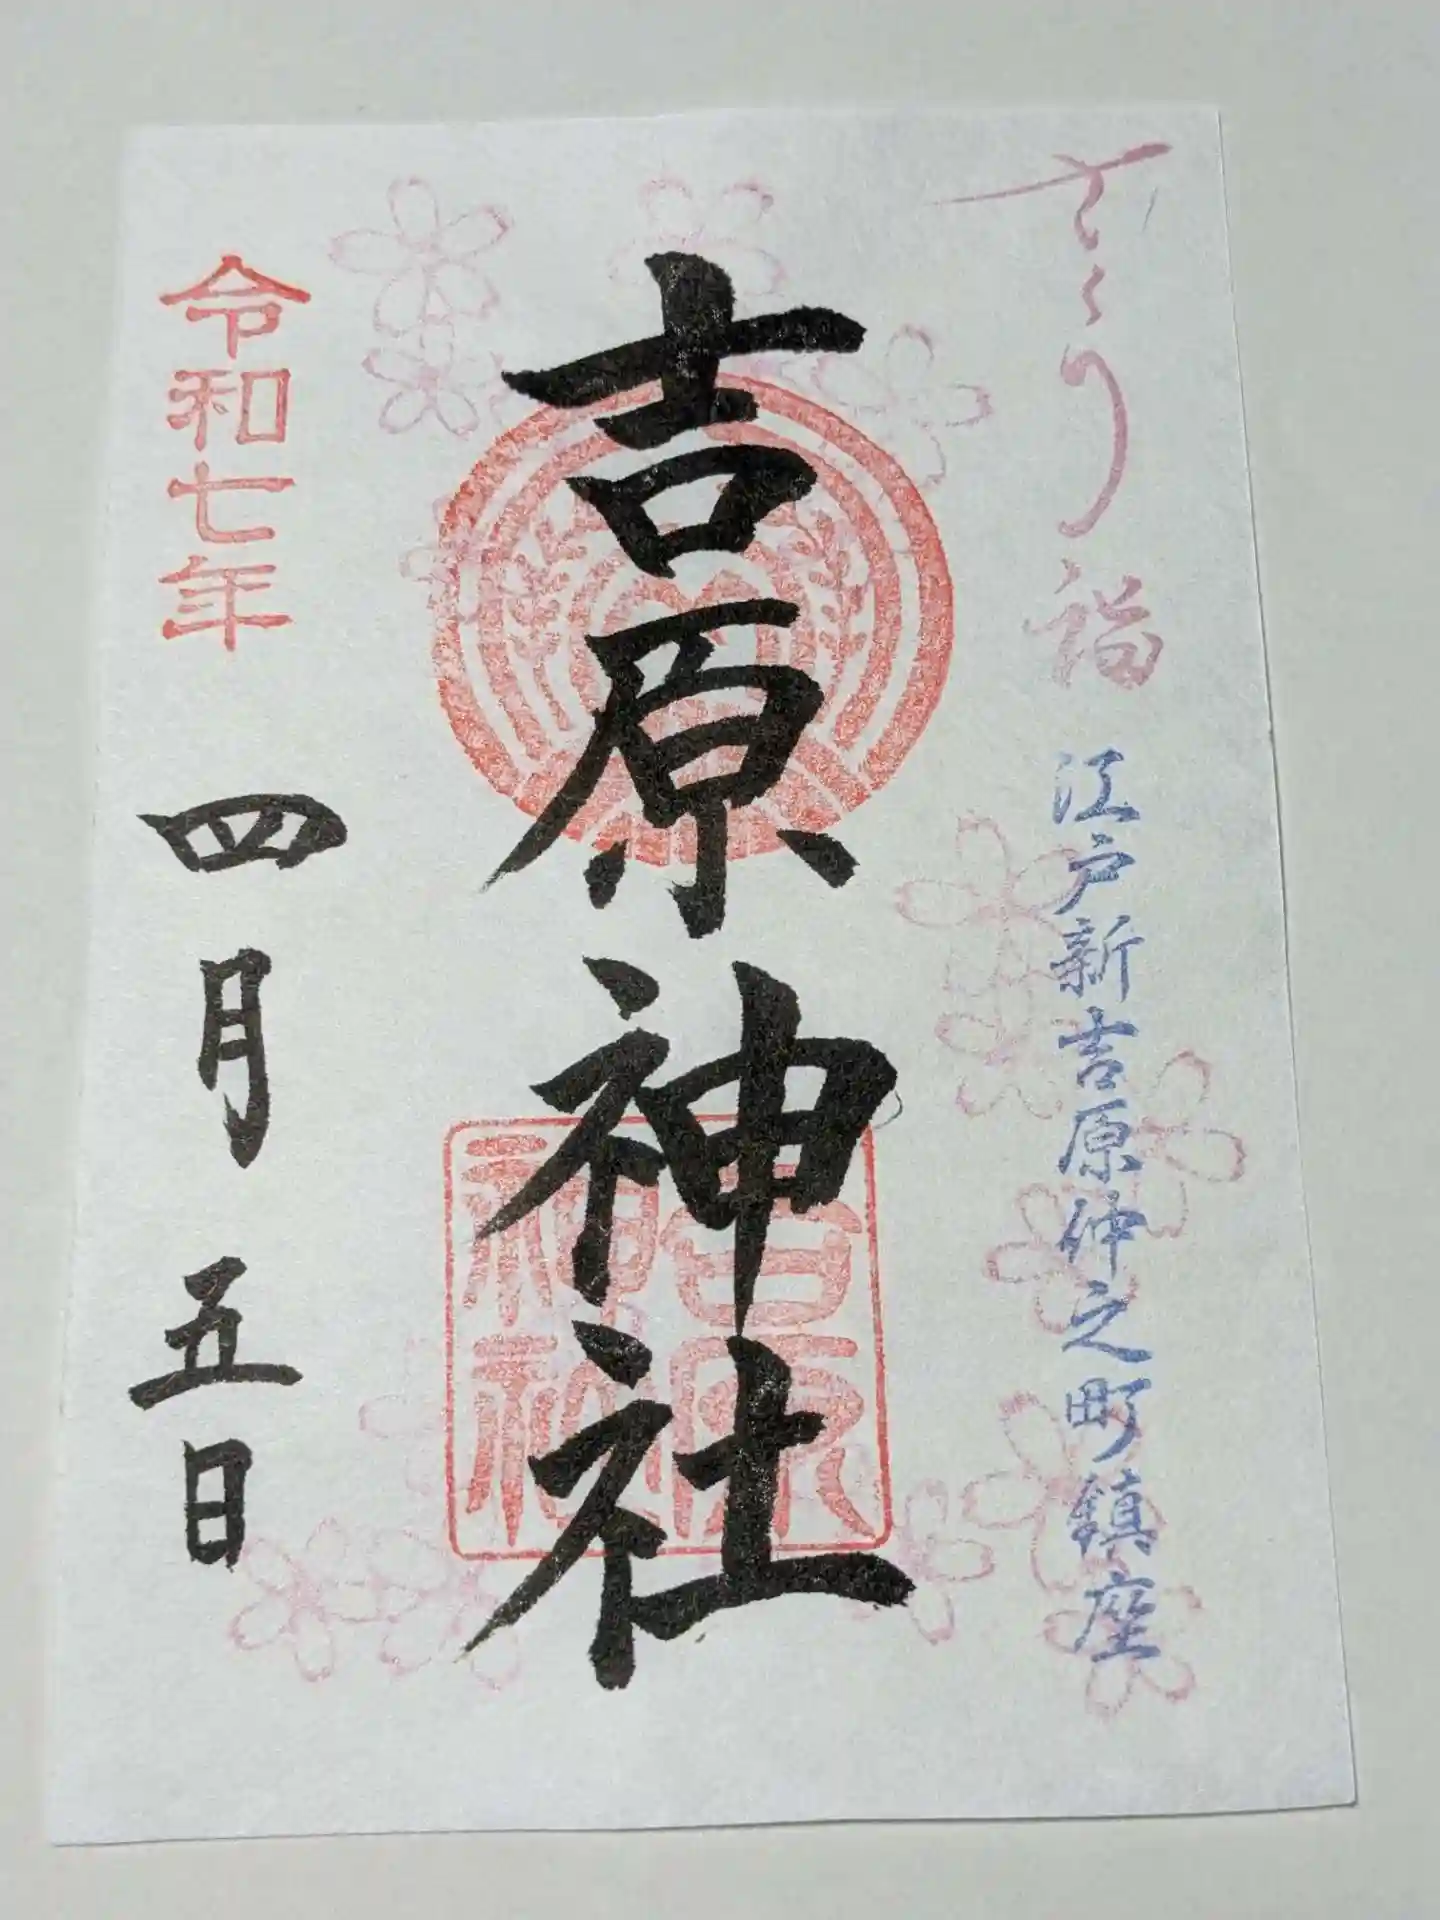 さくら詣
江戸新吉原仲之町鎮座
吉原神社
吉原
神社
令和七年
四月五日